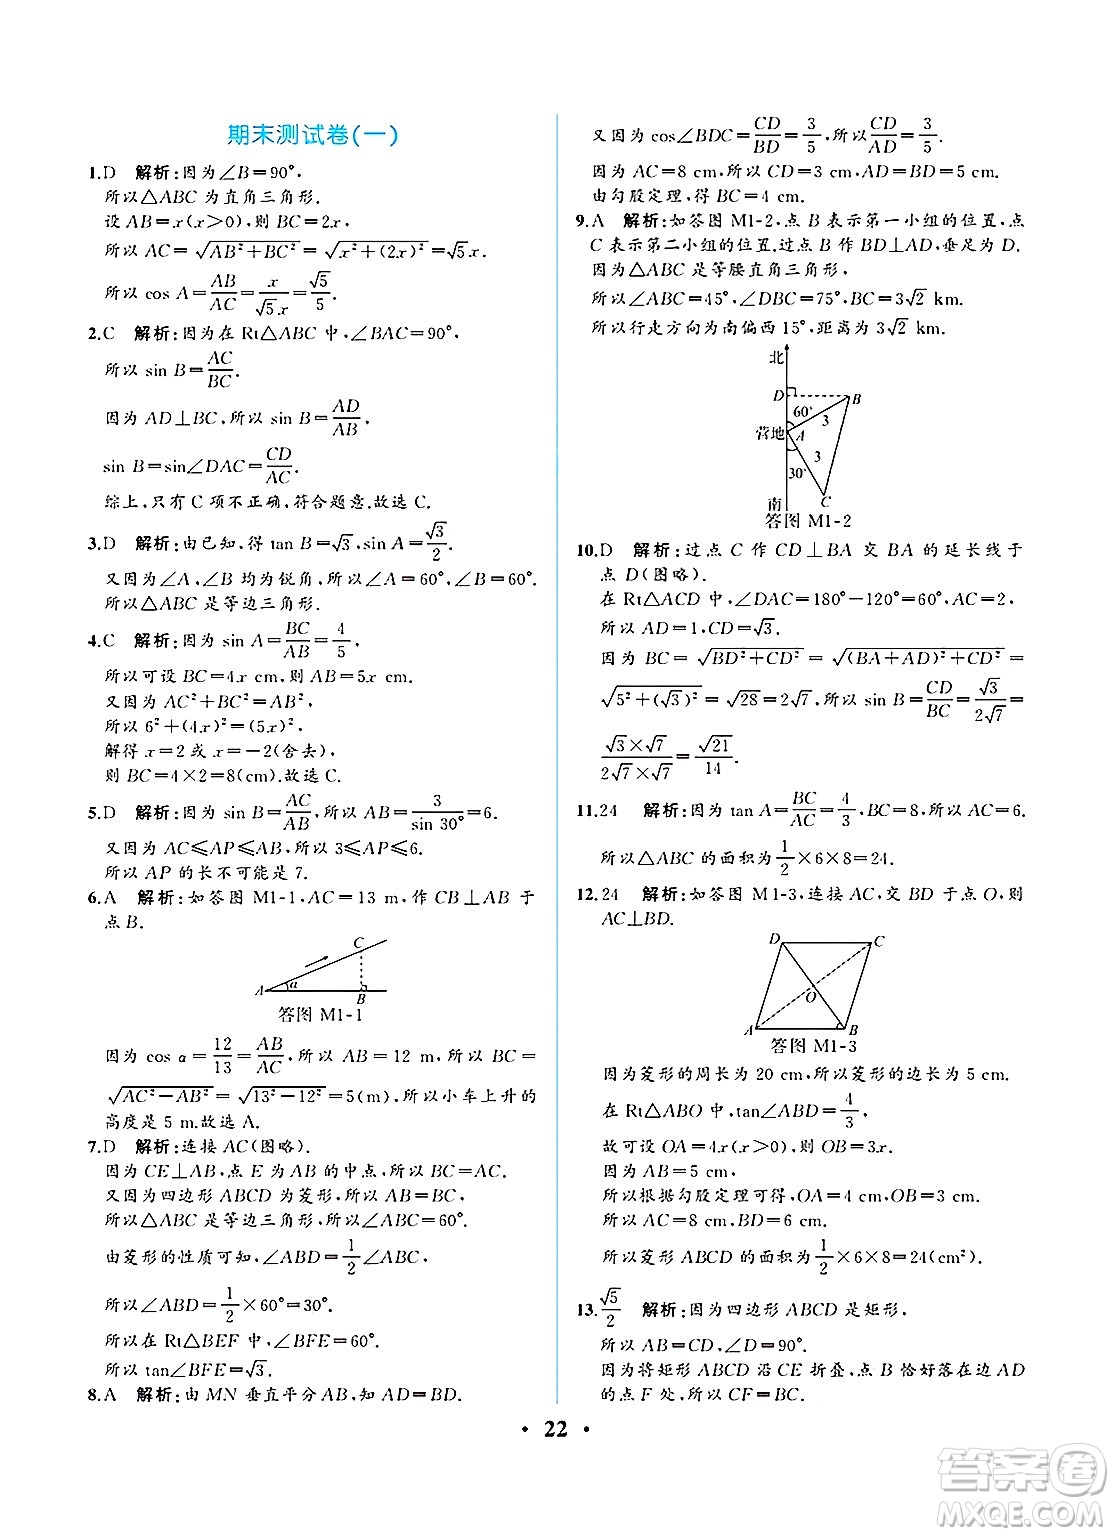 期末测试卷(一)
1.D 解析:因为∠B=90°,
所以△ABC 为直角三角形.
设 AB=x(x>0),则 BC=2x,
所以 AC=√(AB²+BC²)=√(x²+(2x)²)=√5x.
所以 cos A=AB/AC=x/(√5x)=√5/5.
2.C 解析:因为在 Rt△ABC 中,∠BAC=90°,
所以 sin B=AC/BC.
因为 AD⊥BC,所以 sin B=AD/AB,
sin B=sin∠DAC=CD/AC.
综上,只有 C 项不正确,符合题意.故选 C.
3.D 解析:由已知,得 tan B=√3,sin A=√3/2.
又因为∠A,∠B 均为锐角,所以∠A=60°,∠B=60°.
所以△ABC 是等边三角形.
4.C 解析:因为 sin A=BC/AB=4/5,
所以可设 BC=4x cm,则 AB=5x cm.
又因为 AC²+BC²=AB²,
所以 6²+(4x)²=(5x)²,
解得 x=2 或 x=-2(舍去),
则 BC=4×2=8(cm).故选 C.
5.D 解析:因为 sin B=AC/AB,所以 AB=3/sin 30°=6.
又因为 AC≤AP≤AB,所以 3≤AP≤6.
所以 AP 的长不可能是 7.
6.A 解析:如答图 M1-1,AC=13 m,作 CB⊥AB 于
点 B.
C
A α B
答图 M1-1
因为 cos α=12/13=AB/AC,所以 AB=12 m,所以 BC=
√(AC²-AB²)=√(13²-12²)=5(m),所以小车上升的
高度是 5 m.故选 A.
7.D 解析:连接 AC(图略).
因为 CE⊥AB,点 E 为 AB 的中点,所以 BC=AC.
又因为四边形 ABCD 为菱形,所以 AB=BC,
所以△ABC 是等边三角形,所以∠ABC=60°.
由菱形的性质可知,∠ABD=1/2∠ABC,
所以∠ABD=1/2×60°=30°.
所以在 Rt△BEF 中,∠BFE=60°.
所以 tan∠BFE=√3.
8.A 解析:由 MN 垂直平分 AB,知 AD=BD.
又因为 cos∠BDC=CD/BD=3/5,所以CD/AD=3/5.
因为 AC=8 cm,所以 CD=3 cm,AD=BD=5 cm.
由勾股定理,得 BC=4 cm.
9.A 解析:如答图 M1-2,点 B 表示第一小组的位置,点
C 表示第二小组的位置.过点 B 作 BD⊥AD,垂足为 D.
因为△ABC 是等腰直角三角形,
所以∠ABC=45°,∠DBC=75°,BC=3√2 km.
所以行走方向为南偏西 15°,距离为 3√2 km.
北
D B
60° 3
营地 A
3
30°
南 C
答图 M1-2
10.D 解析:过点 C 作 CD⊥BA 交 BA 的延长线于
点 D(图略).
在 Rt△ACD 中,∠DAC=180°-120°=60°,AC=2,
所以 AD=1,CD=√3.
因为 BC=√(BD²+CD²)=√((BA+AD)²+CD²)=
√(5²+(√3)²)=√28=2√7,所以 sin B=CD/BC=√3/(2√7)=
(√3×√7)/(2√7×√7)=√21/14.
11.24 解析:因为 tan A=BC/AC=4/3,BC=8,所以 AC=6.
所以△ABC 的面积为1/2×6×8=24.
12.24 解析:如答图 M1-3,连接 AC,交 BD 于点 O,则
AC⊥BD.
D C
O
A B
答图 M1-3
因为菱形的周长为 20 cm,所以菱形的边长为 5 cm.
在 Rt△ABO 中,tan∠ABD=4/3,
故可设 OA=4x(x>0),则 OB=3x.
因为 AB=5 cm,
所以根据勾股定理可得,OA=4 cm,OB=3 cm.
所以 AC=8 cm,BD=6 cm.
所以菱形 ABCD 的面积为1/2×6×8=24(cm²).
13.√5/2 解析:因为四边形 ABCD 是矩形,
所以 AB=CD,∠D=90°.
因为将矩形 ABCD 沿 CE 折叠,点 B 恰好落在边 AD
的点 F 处,所以 CF=BC.
• 22 •
答案圈
MXQE.COM